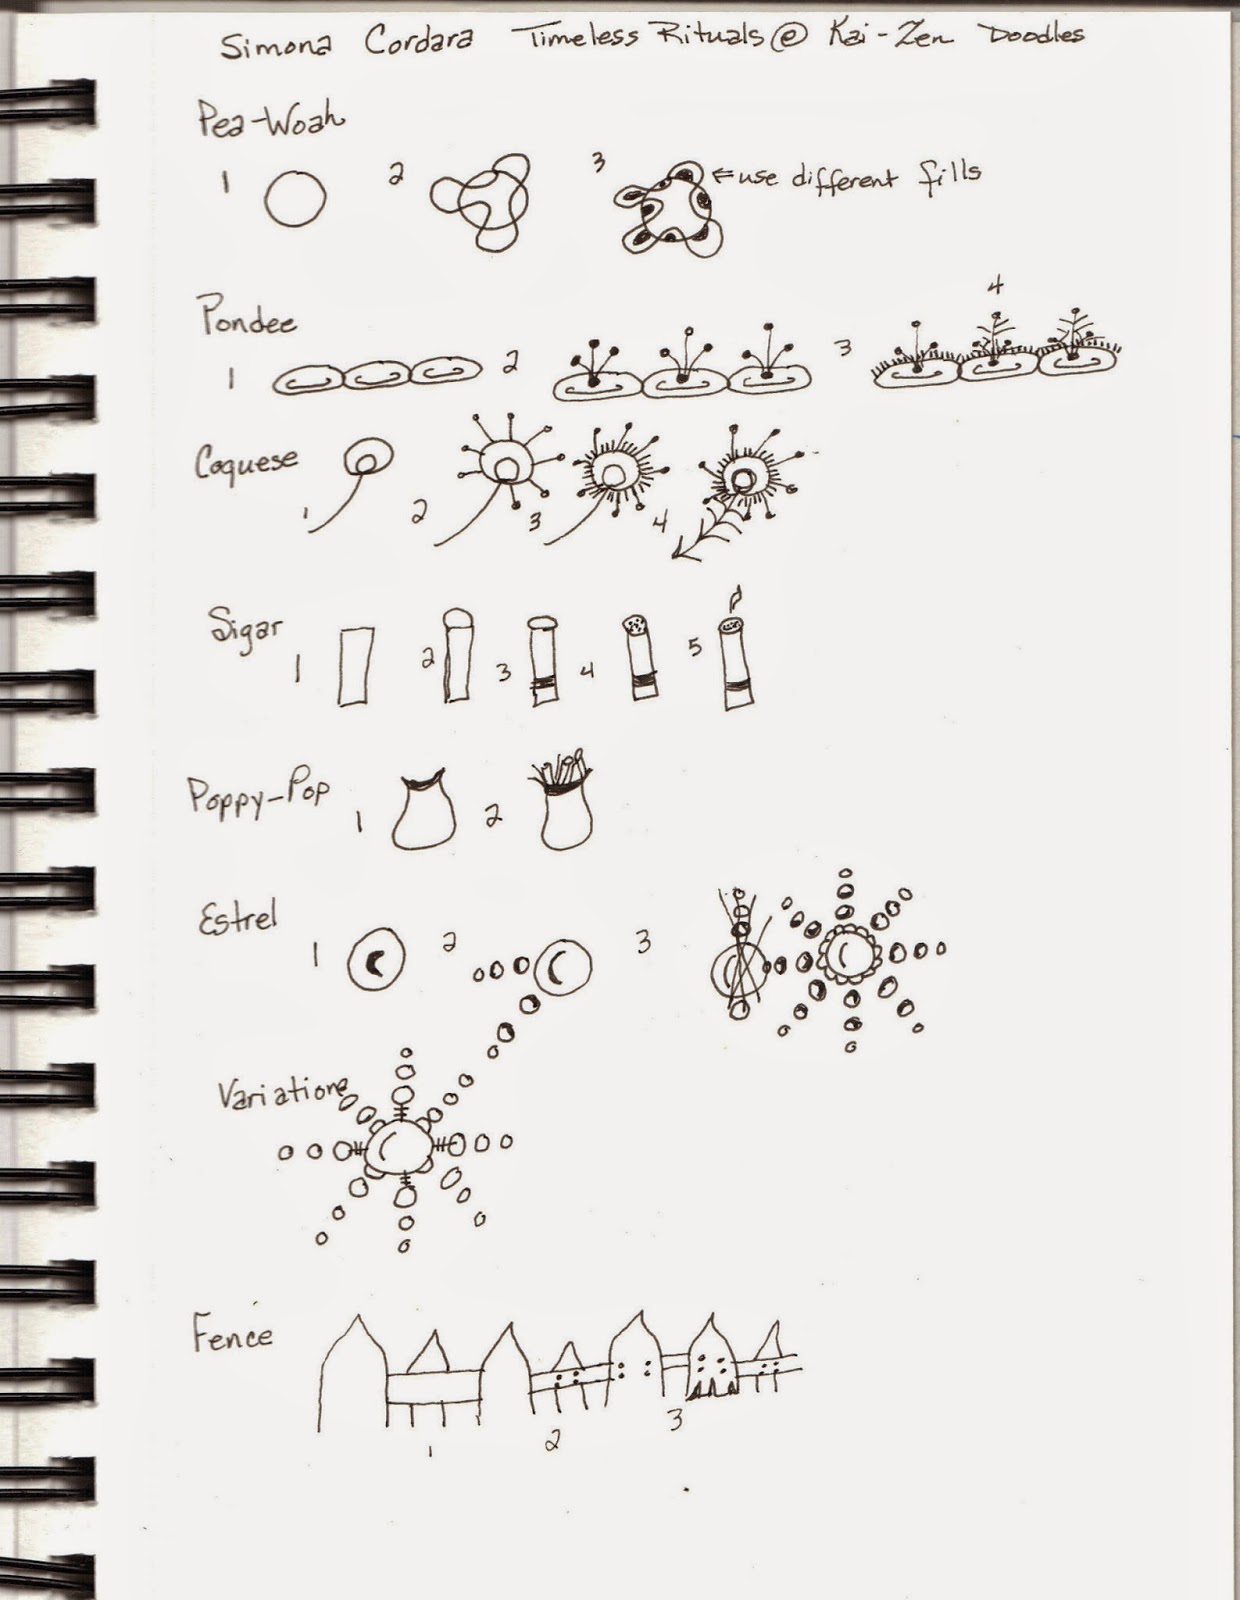 Simona Cordara Timeless Rituals @ Kai-Zen Doodles
Pea-Woah
1 2 3 ⇐ use different fills
Pondee
1 2 3 4
Coquese
1 2 3 4
Sigar
1 2 3 4 5
Poppy-Pop
1 2
Estrel
1 2 3
Variations
Fencé
1 2 3